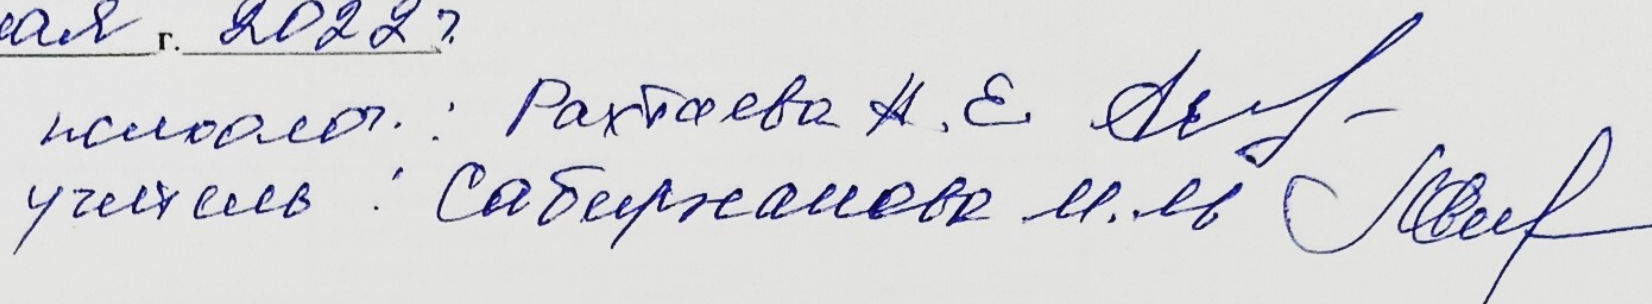 мая г. 2022 г.
психолог. : Рахтаева Н. Е.
учитель : Сабиржанова М. М